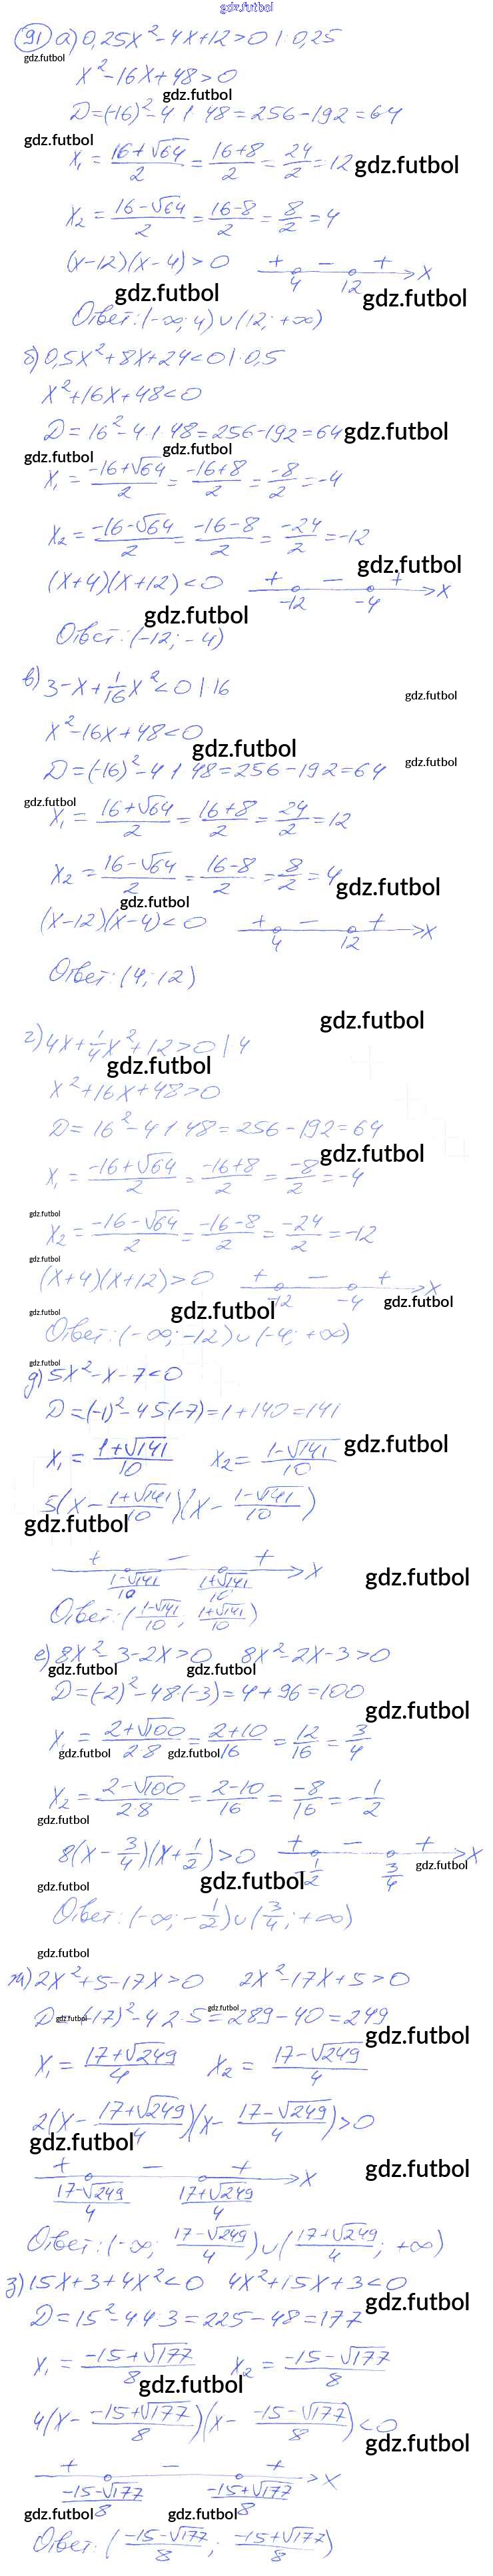 gdz.futbol
91 а) 0,25x² - 4x + 12 > 0 | : 0,25
gdz.futbol
x² - 16x + 48 > 0
gdz.futbol
D = (-16)² - 4·1·48 = 256 - 192 = 64
gdz.futbol
x₁ = (16+√64)/2 = (16+8)/2 = 24/2 = 12 gdz.futbol
x₂ = (16-√64)/2 = (16-8)/2 = 8/2 = 4
(x-12)(x-4) > 0 + - + 4 12 x
gdz.futbol gdz.futbol
Ответ: (-∞; 4) ∪ (12; +∞)
б) 0,5x² + 8x + 24 < 0 | : 0,5
x² + 16x + 48 < 0
D = 16² - 4·1·48 = 256 - 192 = 64 gdz.futbol
gdz.futbol gdz.futbol
x₁ = (-16+√64)/2 = (-16+8)/2 = -8/2 = -4
x₂ = (-16-√64)/2 = (-16-8)/2 = -24/2 = -12
gdz.futbol
(x+4)(x+12) < 0 + - + -12 -4 x
gdz.futbol
Ответ: (-12; -4)
в) 3 - x + 1/16 x² < 0 | ·16
gdz.futbol
x² - 16x + 48 < 0
gdz.futbol
D = (-16)² - 4·1·48 = 256 - 192 = 64 gdz.futbol
gdz.futbol
x₁ = (16+√64)/2 = (16+8)/2 = 24/2 = 12
x₂ = (16-√64)/2 = (16-8)/2 = 8/2 = 4
gdz.futbol
gdz.futbol
(x-12)(x-4) < 0 + - + 4 12 x
Ответ: (4; 12)
gdz.futbol
г) 4x + 1/4 x² + 12 > 0 | ·4
gdz.futbol
x² + 16x + 48 > 0
D = 16² - 4·1·48 = 256 - 192 = 64
gdz.futbol
x₁ = (-16+√64)/2 = (-16+8)/2 = -8/2 = -4
gdz.futbol
x₂ = (-16-√64)/2 = (-16-8)/2 = -24/2 = -12
gdz.futbol
(x+4)(x+12) > 0 + - + -12 -4 x
gdz.futbol gdz.futbol gdz.futbol
Ответ: (-∞; -12) ∪ (-4; +∞)
gdz.futbol
д) 5x² - x - 7 < 0
D = (-1)² - 4·5·(-7) = 1 + 140 = 141
x₁ = (1+√141)/10 x₂ = (1-√141)/10 gdz.futbol
5(x - (1+√141)/10)(x - (1-√141)/10)
gdz.futbol
+ - + (1-√141)/10 (1+√141)/10 x
gdz.futbol
Ответ: ((1-√141)/10; (1+√141)/10)
е) 8x² - 3 - 2x > 0 8x² - 2x - 3 > 0
gdz.futbol gdz.futbol
D = (-2)² - 4·8·(-3) = 4 + 96 = 100
gdz.futbol
x₁ = (2+√100)/(2·8) = (2+10)/16 = 12/16 = 3/4
gdz.futbol gdz.futbol
x₂ = (2-√100)/(2·8) = (2-10)/16 = -8/16 = -1/2
gdz.futbol
8(x - 3/4)(x + 1/2) > 0 + - + -1/2 3/4 x
gdz.futbol
gdz.futbol gdz.futbol
Ответ: (-∞; -1/2) ∪ (3/4; +∞)
gdz.futbol
ж) 2x² + 5 - 17x > 0 2x² - 17x + 5 > 0
gdz.futbol gdz.futbol
D = (-17)² - 4·2·5 = 289 - 40 = 249
gdz.futbol
x₁ = (17+√249)/4 x₂ = (17-√249)/4
2(x - (17+√249)/4)(x - (17-√249)/4) > 0
gdz.futbol
gdz.futbol
+ - + (17-√249)/4 (17+√249)/4 x
Ответ: (-∞; (17-√249)/4) ∪ ((17+√249)/4; +∞)
з) 15x + 3 + 4x² < 0 4x² + 15x + 3 < 0
gdz.futbol
D = 15² - 4·4·3 = 225 - 48 = 177
x₁ = (-15+√177)/8 x₂ = (-15-√177)/8
gdz.futbol
4(x - (-15+√177)/8)(x - (-15-√177)/8) < 0
gdz.futbol
+ - + (-15-√177)/8 (-15+√177)/8 x
gdz.futbol gdz.futbol
Ответ: ((-15-√177)/8; (-15+√177)/8)